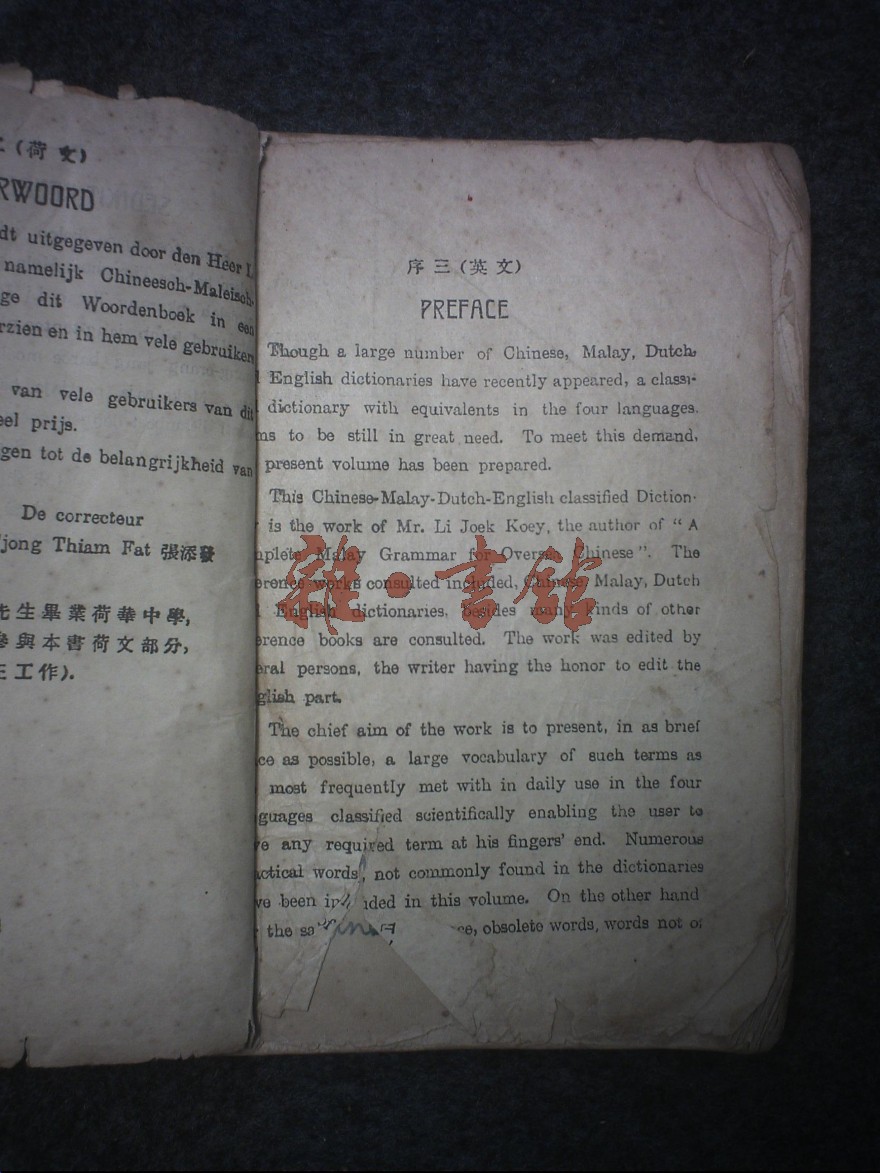 (荷文)
RWOORD
dt uitgegeven door den Heer L
namelijk Chineesch-Maleisch-
ge dit Woordenboek in een
rzien en in hem vele gebruikers
van vele gebruikers van dit
eel prijs.
gen tot de belangrijkheid van
De correcteur
jong Thiam Fat 張添發
先生畢業荷華中學,
參與本書荷文部分,
工作).
序三(英文)
PREFACE
Though a large number of Chinese, Malay, Dutch,
English dictionaries have recently appeared, a classi-
dictionary with equivalents in the four languages.
ms to be still in great need. To meet this demand,
present volume has been prepared.
This Chinese-Malay-Dutch-English classified Diction-
is the work of Mr. Li Joek Koey, the author of "A
mplete Malay Grammar for Oversea Chinese". The
erence works consulted included, Chinese, Malay, Dutch
English dictionaries, besides many kinds of other
erence books are consulted. The work was edited by
eral persons, the writer having the honor to edit the
glish part.
The chief aim of the work is to present, in as brief
ce as possible, a large vocabulary of such terms as
most frequently met with in daily use in the four
guages classified scientifically enabling the user to
ve any required term at his fingers' end. Numerous
actical words, not commonly found in the dictionaries
ve been in uded in this volume. On the other hand
the sa ce, obsolete words, words not of
雜·書館